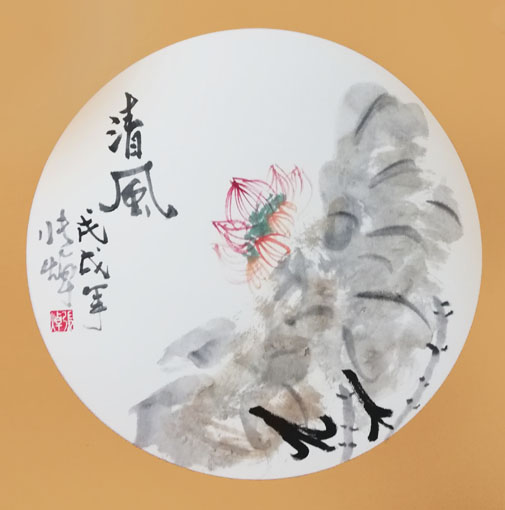 清風
戊戌年